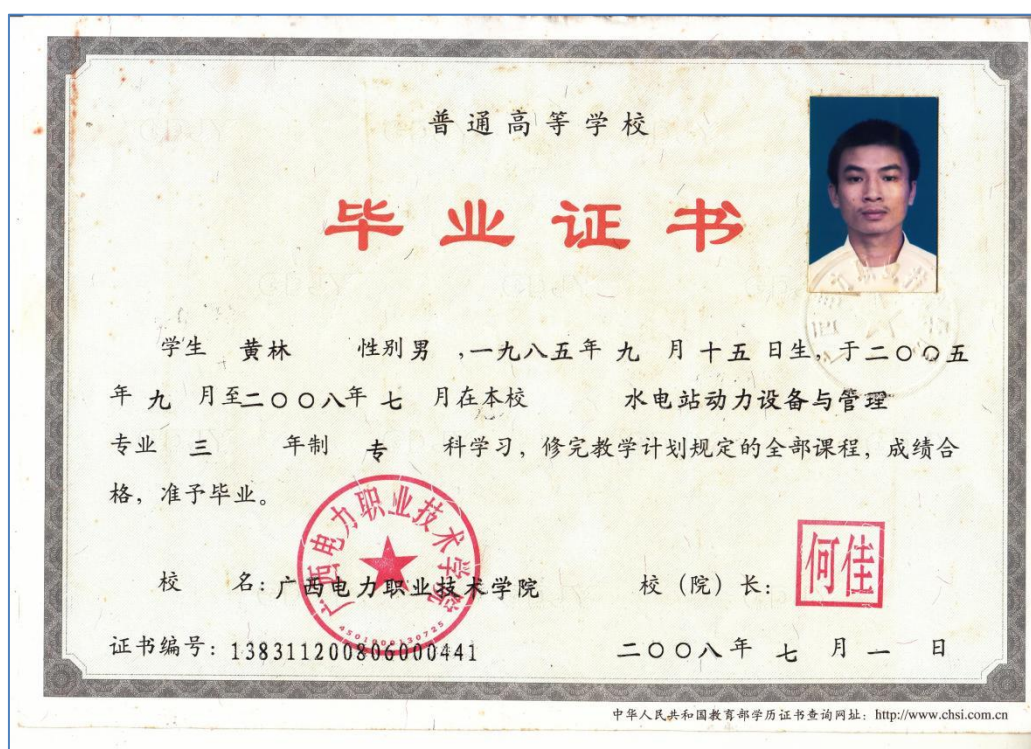 普通高等学校
毕业证书
学生 黄林 性别 男 ,一九八五年 九 月 十五 日生, 于二〇〇五
年 九 月至二〇〇八年 七 月在本校 水电站动力设备与管理
专业 三 年制 专 科学习, 修完教学计划规定的全部课程, 成绩合
格, 准予毕业。
广西电力职业技术学院
何佳
校 名: 广西电力职业技术学院 校 (院) 长:
证书编号: 138311200806000441 二〇〇八年 七 月 一 日
中华人民共和国教育部学历证书查询网址: http://www.chsi.com.cn